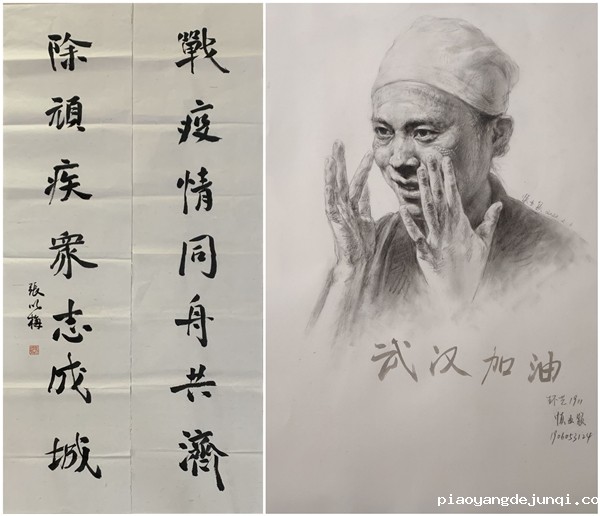 戰疫情同舟共濟
除頑疾衆志成城
張以梅
武汉加油
环艺1911
1906053124
piaoyangdejunqi.co